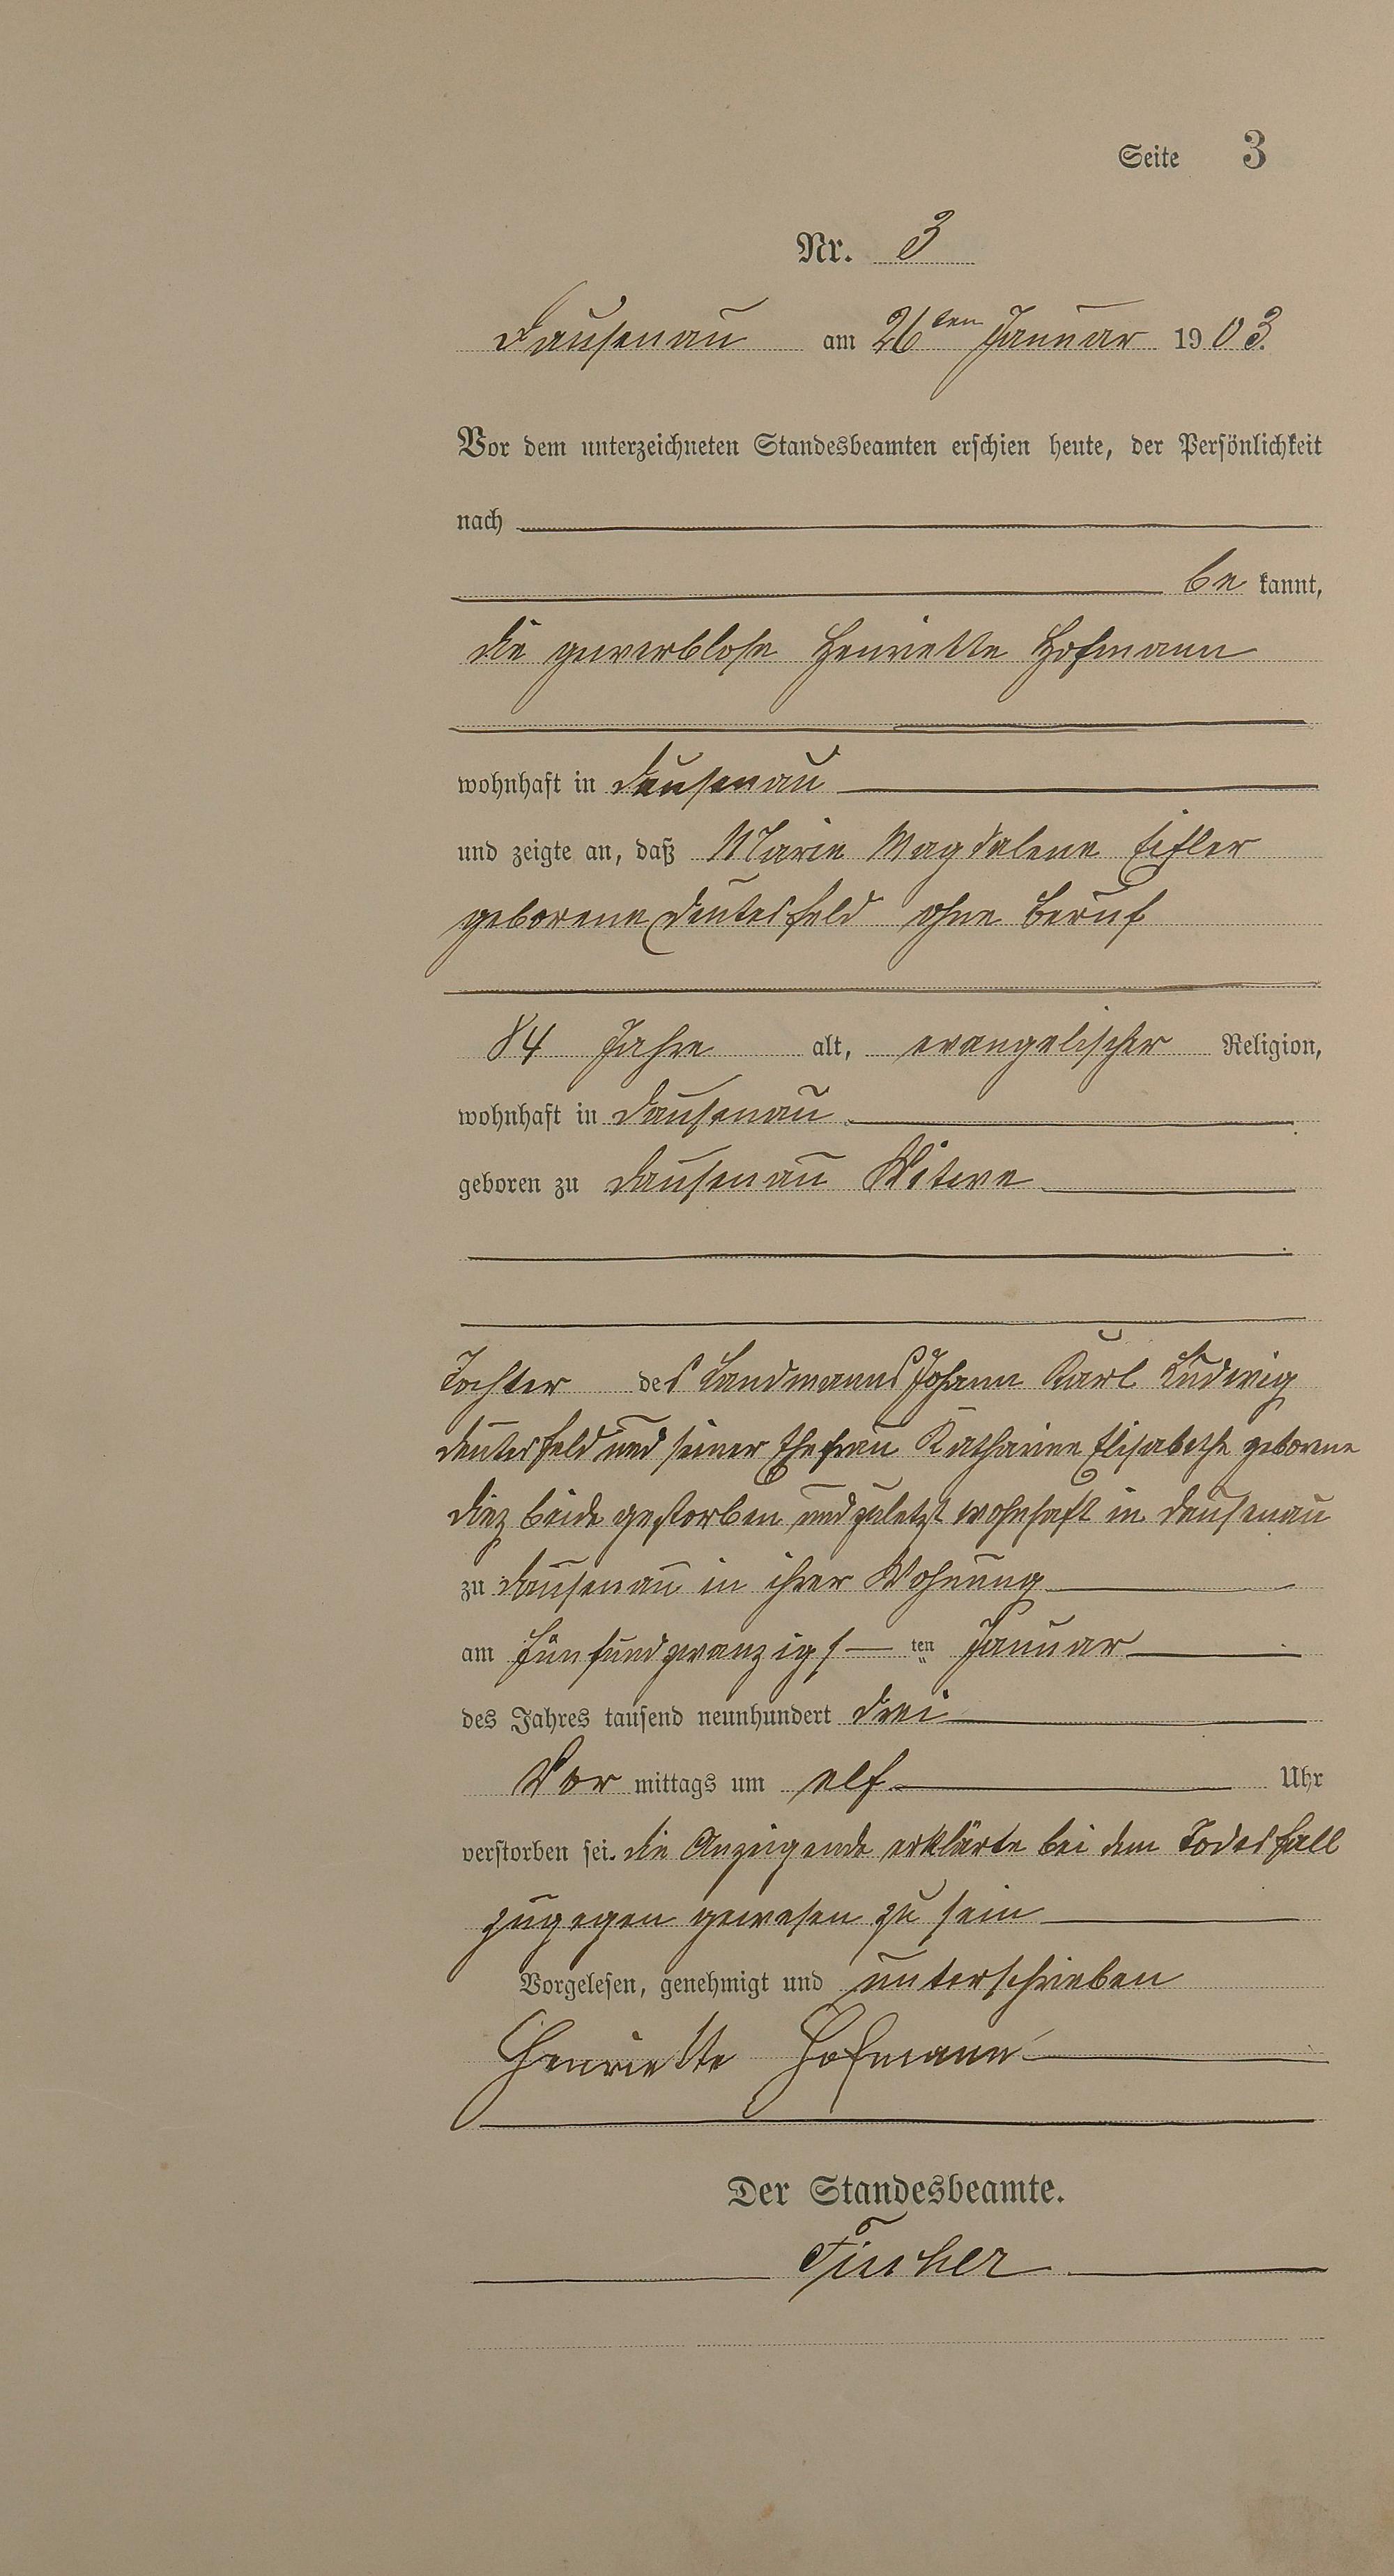 Seite 3
Nr. 3
Dausenau am 26ten Januar 1903.
Vor dem unterzeichneten Standesbeamten erschien heute, der Persönlichkeit
nach
be kannt,
die gewerblose Henriette Hofmann
wohnhaft in Dausenau
und zeigte an, daß Marie Magdalene Eifler
geborene Deutesfeld ohne Beruf
84 Jahre alt, evangelischer Religion,
wohnhaft in Dausenau
geboren zu Dausenau Witwe
Tochter des Landmanns Johann Karl Ludwig
Deutesfeld und seiner Ehefrau Katharine Elisabethe geborene
Diez beide gestorben und zuletzt wohnhaft in Dausenau
zu Dausenau in ihrer Wohnung
am fünfundzwanzigs ten Januar
des Jahres tausend neunhundert drei
Vor mittags um elf Uhr
verstorben sei. die Anzeigende erklärte bei dem Todesfall
zugegen gewesen zu sein
Vorgelesen, genehmigt und unterschrieben
Henriette Hofmann
Der Standesbeamte.